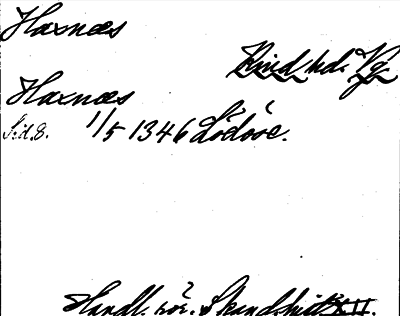 Haxnæs
Kind hd. Vg.
Haxnæs
Sid. 8. 1/5 1346 Lödöse.
Handl. rör. Skand. hist. XII.